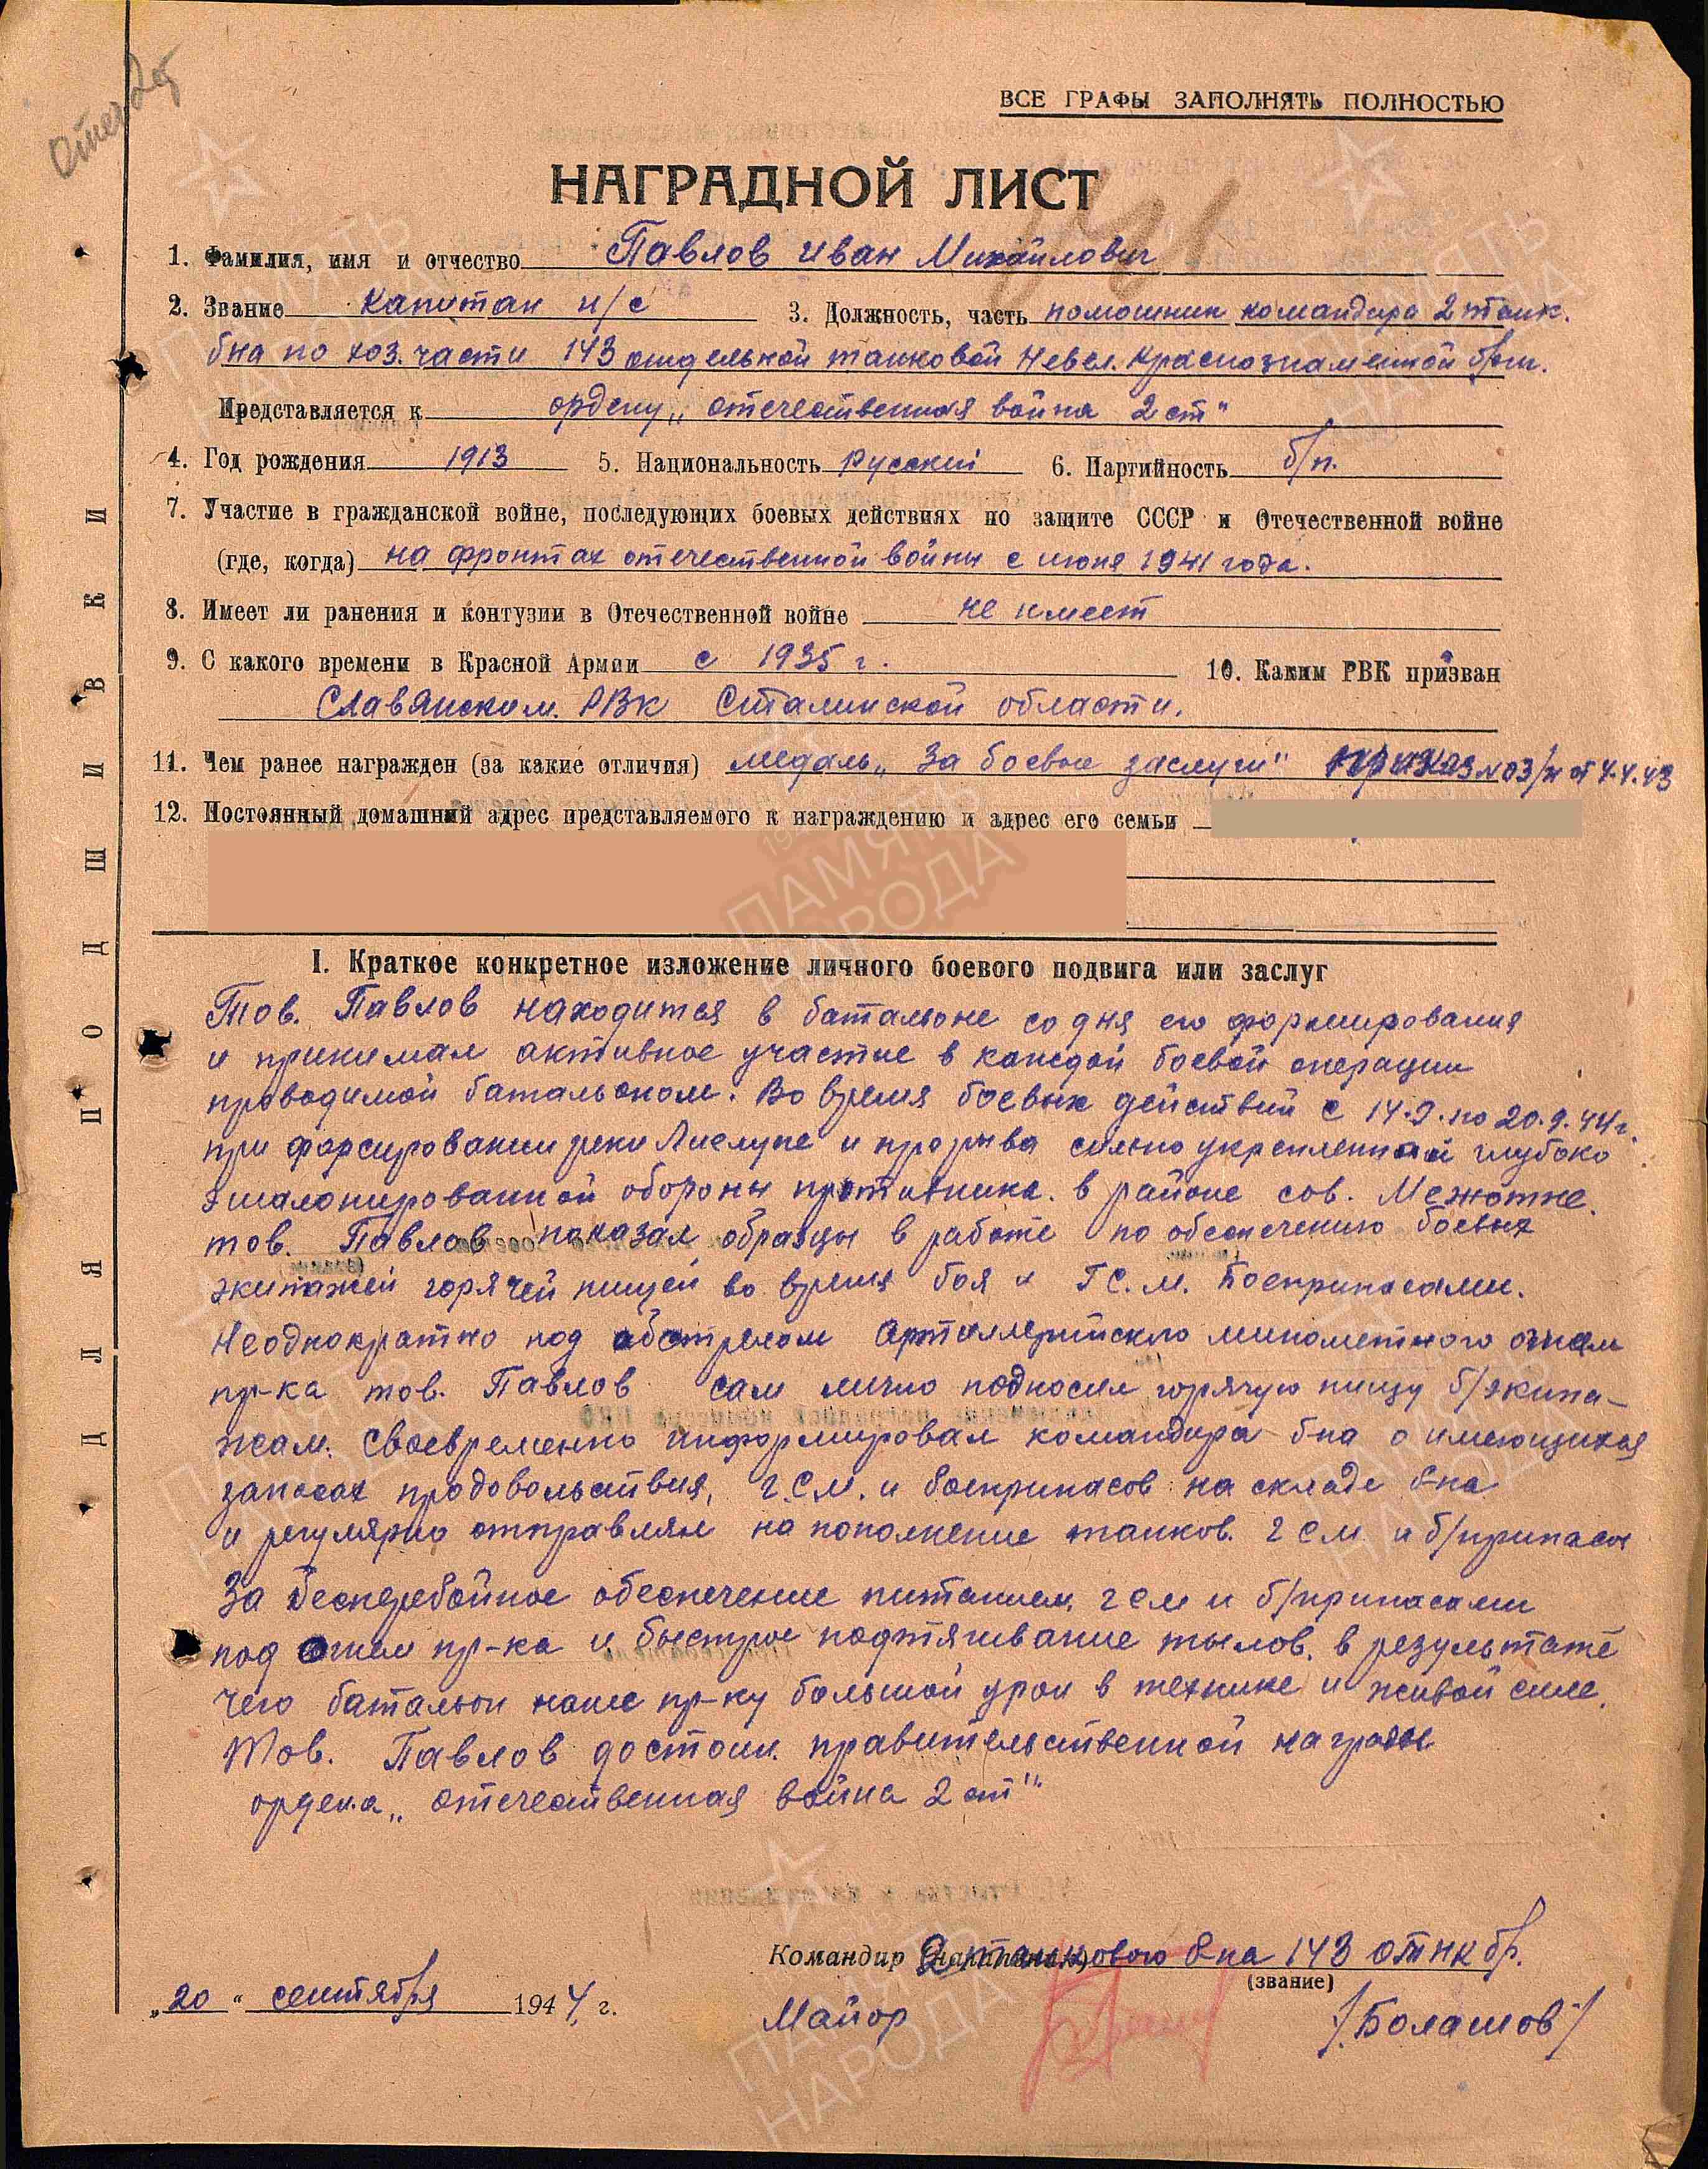 ВСЕ ГРАФЫ ЗАПОЛНЯТЬ ПОЛНОСТЬЮ
НАГРАДНОЙ ЛИСТ
1. Фамилия, имя и отчество Павлов Иван Михайлович
2. Звание капитан и/с 3. Должность, часть помошник командира 2 танк.
б-на по хоз. части 143 отдельной танковой Невел. Краснознаменной бриг.
Представляется к ордену „отечественная война 2 ст"
4. Год рождения 1913 5. Национальность Русский 6. Партийность б/п.
7. Участие в гражданской войне, последующих боевых действиях по защите СССР и Отечественной войне
(где, когда) на фронтах отечественной войны с июня 1941 года.
8. Имеет ли ранения и контузии в Отечественной войне не имеет
9. С какого времени в Красной Армии с 1935 г. 10. Каким РВК призван
Славянским РВК Сталинской области.
11. Чем ранее награжден (за какие отличия) медаль „За боевые заслуги" приказ №03/н от 4.4.43
12. Постоянный домашний адрес представляемого к награждению и адрес его семьи
I. Краткое конкретное изложение личного боевого подвига или заслуг
Тов. Павлов находится в батальоне со дня его формирования
и принимал активное участие в каждой боевой операции
проводимой батальоном. Во время боевых действий с 14.9. по 20.9.44 г.
при форсировании реки Лиелупе и прорыва сильно укрепленной глубоко
эшалонированной обороны противника. в районе сов. Межотне.
тов. Павлов показал образцы в работе по обеспечению боевых
экипажей горячей пищей во время боя и Г.С.М. Боеприпасами.
Неоднократно под обстрелом Артиллерийского минометного огнем
пр-ка тов. Павлов сам лично подносил горячую пищу б/экипа-
жам. Своевременно информировал командира б-на о имеющихся
запасах продовольствия, г.с.м. и боеприпасов на складе б-на
и регулярно отправлял на пополнение танков. гсм и б/припасы
За бесперебойное обеспечение питанием, гсм и б/припасами
под огнем пр-ка и быстрое подтягивание тылов. в результате
чего батальон нанес пр-ку большой урон в технике и живой силе.
Тов. Павлов достоин правительственной награды
ордена „отечественная война 2 ст"
Командир 2 танкового б-на 143 отнк бр.
(звание)
„20" сентября 1944 г.
Майор /Болашов/
ДЛЯ ПОДШИВКИ
ПАМЯТЬ НАРОДА